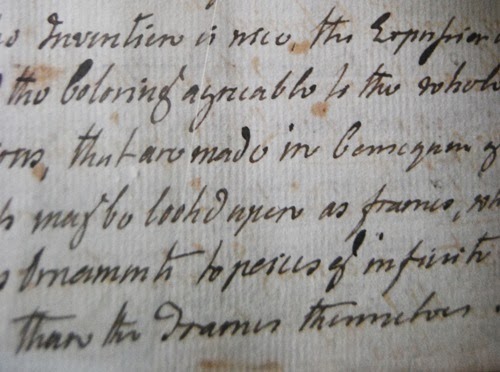 Invention is nice, the Expression
the Coloring agreeable to the whole
that are made in Consequen of
may be look'd upon as frames, wh
Ornaments to peices of infinite
than the Frames themselves.